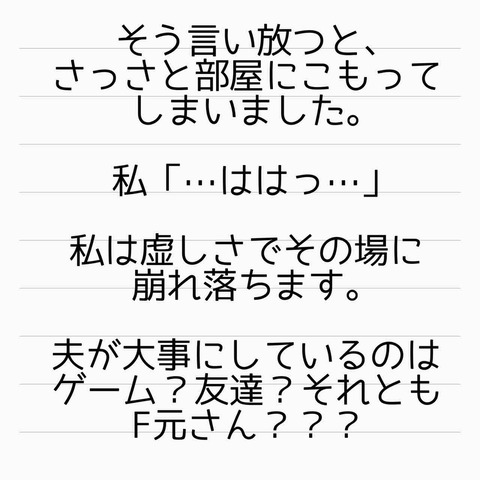 そう言い放つと、
さっさと部屋にこもって
しまいました。
私「…ははっ…」
私は虚しさでその場に
崩れ落ちます。
夫が大事にしているのは
ゲーム？友達？それとも
F元さん？？？